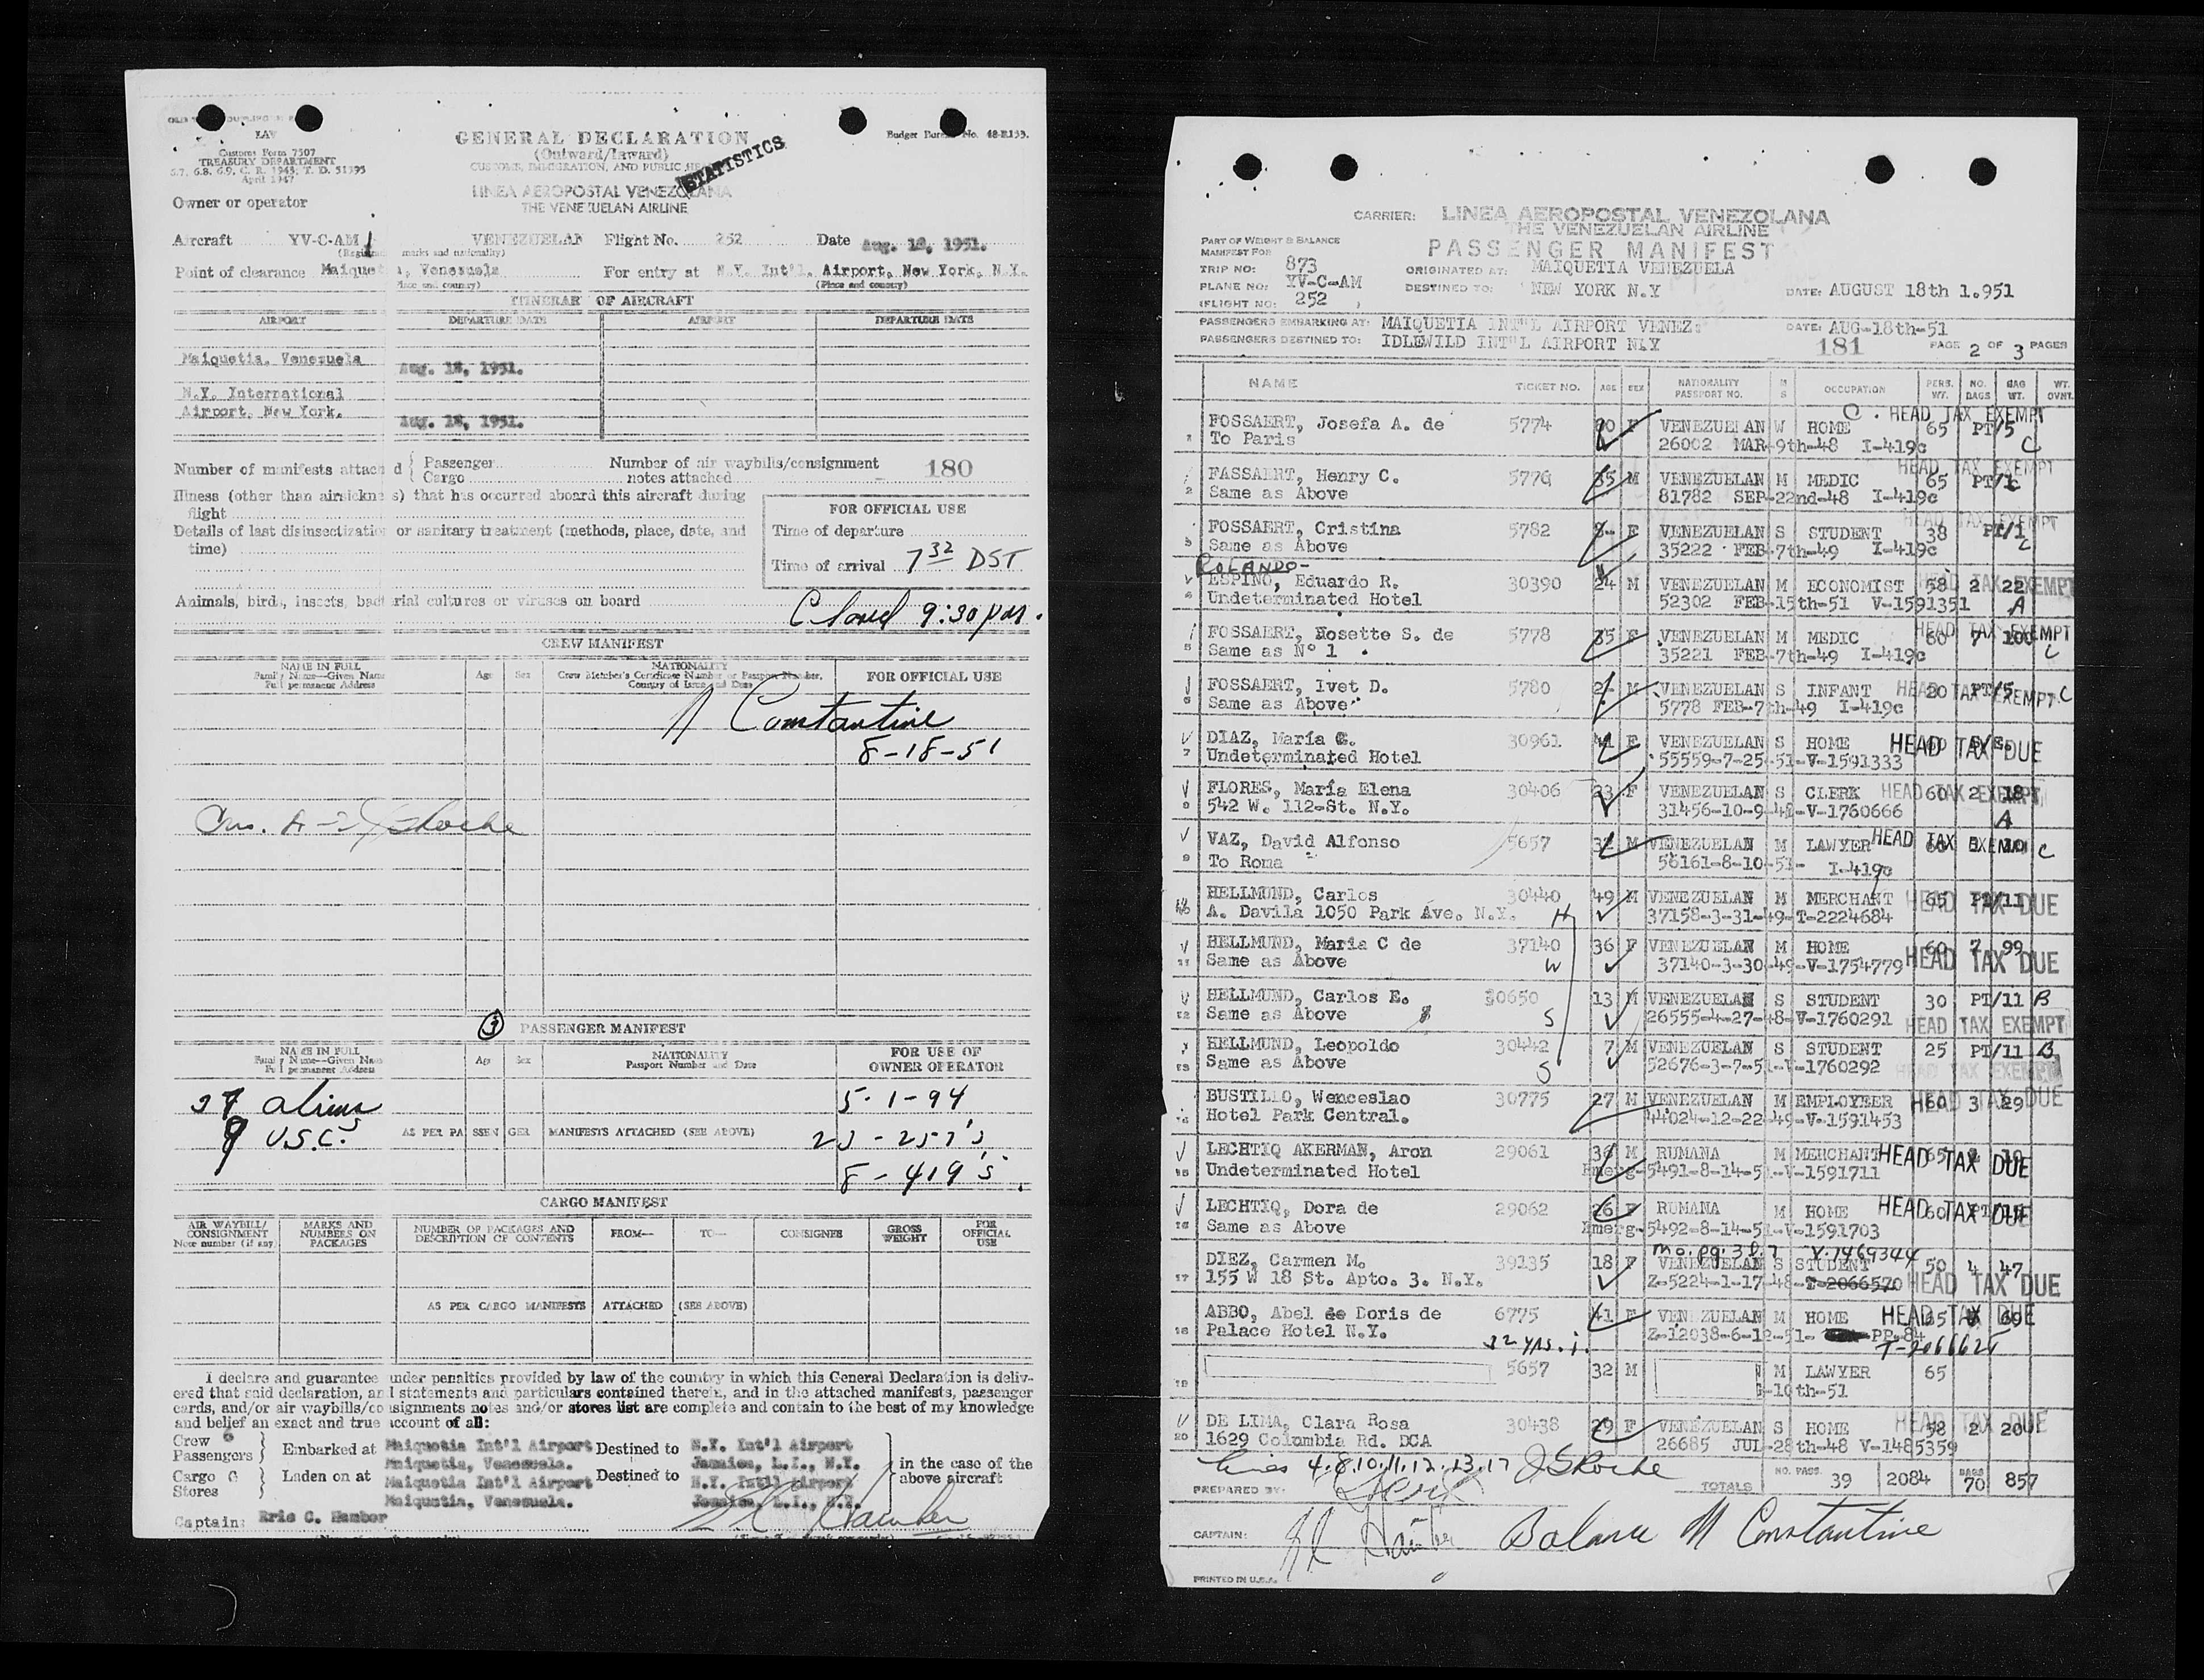 LAV
Customs Form 7507
TREASURY DEPARTMENT
6.7, 6.8, 6.9, C. R. 1945; T. D. 51395
April 1947
GENERAL DECLARATION
(Outward/Inward)
CUSTOMS, IMMIGRATION, AND PUBLIC
STATISTICS
Budget Bureau No. 48-R133.
LINEA AEROPOSTAL VENEZOLANA
THE VENEZUELAN AIRLINE
Owner or operator
Aircraft YV-C-AM VENEZUELAN Flight No. 252 Date Aug. 18, 1951.
marks and nationality)
Point of clearance Maiquetia, Venezuela For entry at N.Y. Int'l. Airport, New York, N.Y.
(Place and country) (Place and country)
ITINERARY OF AIRCRAFT
AIRPORT DEPARTURE DATE AIRPORT DEPARTURE DATE
Maiquetia, Venezuela Aug. 18, 1951.
N.Y. International
Airport, New York. Aug. 18, 1951.
Number of manifests attached { Passenger Number of air waybills/consignment 180
Cargo notes attached
Illness (other than airsickness) that has occurred aboard this aircraft during
flight
FOR OFFICIAL USE
Details of last disinsectization or sanitary treatment (methods, place, date, and
time)
Time of departure
Time of arrival 7 32 DST
Animals, birds, insects, bacterial cultures or viruses on board
Closed 9:30 pm.
CREW MANIFEST
NAME IN FULL Age Sex NATIONALITY FOR OFFICIAL USE
Family Name—Given Name Crew Member's Certificate Number or Passport Number,
Full permanent Address Country of Issue and Date
M Constantine
8-18-51
PASSENGER MANIFEST
NAME IN FULL Age Sex NATIONALITY FOR USE OF
Family Name—Given Name Passport Number and Date OWNER OPERATOR
Full permanent Address
aliens 5-1-94
9 U.S.C.s AS PER PASSENGER MANIFESTS ATTACHED (SEE ABOVE) 23 - 257's
8 - 419's.
CARGO MANIFEST
AIR WAYBILL/ CONSIGNMENT Note number (if any) MARKS AND NUMBERS ON PACKAGES NUMBER OF PACKAGES AND DESCRIPTION OF CONTENTS FROM— TO— CONSIGNEE GROSS WEIGHT FOR OFFICIAL USE
AS PER CARGO MANIFESTS ATTACHED (SEE ABOVE)
I declare and guarantee under penalties provided by law of the country in which this General Declaration is deliv-
ered that said declaration, and statements and particulars contained therein, and in the attached manifests, passenger
cards, and/or air waybills/consignments notes and/or stores list are complete and contain to the best of my knowledge
and belief an exact and true account of all:
Crew 6
Passengers } Embarked at Maiquetia Int'l Airport Destined to N.Y. Int'l Airport
Maiquetia, Venezuela. Jamaica, L.I., N.Y.
Cargo
Stores } Laden on at Maiquetia Int'l Airport Destined to N.Y. Int'l Airport
Maiquetia, Venezuela. Jamaica, L.I., N.Y.
in the case of the
above aircraft
Captain: Eric C. Hamber
CARRIER: LINEA AEROPOSTAL VENEZOLANA
THE VENEZUELAN AIRLINE
PASSENGER MANIFEST
PART OF WEIGHT & BALANCE
MANIFEST FOR
TRIP NO: 873 ORIGINATED AT: MAIQUETIA VENEZUELA
PLANE NO: YV-C-AM DESTINED TO: NEW YORK N.Y DATE: AUGUST 18th 1.951
(FLIGHT NO: 252 )
PASSENGERS EMBARKING AT: MAIQUETIA INT'L AIRPORT VENEZ: DATE: AUG-18th-51
PASSENGERS DESTINED TO: IDLEWILD INT'L AIRPORT N.Y 181 PAGE 2 OF 3 PAGES
NAME TICKET NO. AGE SEX NATIONALITY PASSPORT NO. M S OCCUPATION PERS. WT. NO. BAGS BAG WT. WT. OVHT.
1 FOSSAERT, Josefa A. de 5774 F VENEZUELAN W HOME 65 PT/5 C HEAD TAX EXEMPT
To Paris 26002 MAR-9th-48 I-419c
2 FASSAERT, Henry C. 5776 35 M VENEZUELAN M MEDIC 65 PT/1 C HEAD TAX EXEMPT
Same as Above 81782 SEP-22nd-48 I-419c
3 FOSSAERT, Cristina 5782 F VENEZUELAN S STUDENT 38 PT/1 C HEAD TAX EXEMPT
Same as Above 35222 FEB-7th-49 I-419c
ROLANDO-
ESPINO, Eduardo R. 30390 24 M VENEZUELAN M ECONOMIST 58 2 22 HEAD TAX EXEMPT
Undeterminated Hotel 52302 FEB-15th-51 V-1591351 A
5 FOSSAERT, Nosette S. de 5778 35 F VENEZUELAN M MEDIC 60 7 100 HEAD TAX EXEMPT
Same as Nº 1 . 35221 FEB-7th-49 I-419c C
6 FOSSAERT, Ivet D. 5780 2- M VENEZUELAN S INFANT 20 PT/5 HEAD TAX EXEMPT C
Same as Above 5778 FEB-7th-49 I-419c
7 DIAZ, María G. 30961 F VENEZUELAN S HOME HEAD TAX DUE
Undeterminated Hotel 55559-7-25-51-V-1591333
8 FLORES, María Elena 30406 23 F VENEZUELAN S CLERK 60 2 18 HEAD TAX EXEMPT
542 W. 112-St. N.Y. 31456-10-9-48-V-1760666 A
9 VAZ, David Alfonso 5657 32 M VENEZUELAN M LAWYER HEAD TAX EXEMPT C
To Roma 56161-8-10-51- I-419c
10 HELLMUND, Carlos 30440 49 M VENEZUELAN M MERCHANT 65 PT/11 HEAD TAX DUE
A. Davila 1050 Park Ave. N.Y. H 37158-3-31-49-T-2224684
11 HELLMUND, Maria C de 37140 36 F VENEZUELAN M HOME 60 7 99
Same as Above W 37140-3-30-49-V-1754779 HEAD TAX DUE
12 HELLMUND, Carlos E. 30650 13 M VENEZUELAN S STUDENT 30 PT/11 B
Same as Above S 26555-4-27-48-V-1760291 HEAD TAX EXEMPT
13 HELLMUND, Leopoldo 30442 7 M VENEZUELAN S STUDENT 25 PT/11 B
Same as Above S 52676-3-7-51-V-1760292 HEAD TAX EXEMPT
14 BUSTILLO, Wenceslao 30775 27 M VENEZUELAN M EMPLOYEER 60 3 29 HEAD TAX DUE
Hotel Park Central. 44024-12-22-49-V-1591453
15 LECHTIQ AKERMAN, Aron 29061 36 M RUMANA M MERCHANT 65 HEAD TAX DUE
Undeterminated Hotel Emerg-5491-8-14-51-V-1591711
16 LECHTIQ, Dora de 29062 26 F RUMANA M HOME 60 HEAD TAX DUE
Same as Above Emerg-5492-8-14-51-V-1591703
mo. pg. 3 l. 7 V-1469344
17 DIEZ, Carmen M. 39135 18 F VENEZUELAN S STUDENT 50 4 47
155 W 18 St. Apto. 3. N.Y. Z-5224-1-17-48-T-2066570 HEAD TAX DUE
18 ABBO, Abel de Doris de 6775 41 F VENEZUELAN M HOME 65 69 HEAD TAX DUE
Palace Hotel N.Y. Z-12038-6-12-51- PP-84
32 yrs. T-2066625
19 5657 32 M M LAWYER 65
-10th-51
20 DE LIMA, Clara Rosa 30438 29 F VENEZUELAN S HOME 58 2 20 HEAD TAX DUE
1629 Colombia Rd. DCA 26685 JUL-28th-48 V-1485359
Lines 4.8.10.11.12.13.17
PREPARED BY: TOTALS NO. PASS. 39 2084 BAGS 70 857
CAPTAIN: Balance M Constantine
PRINTED IN U.S.A.